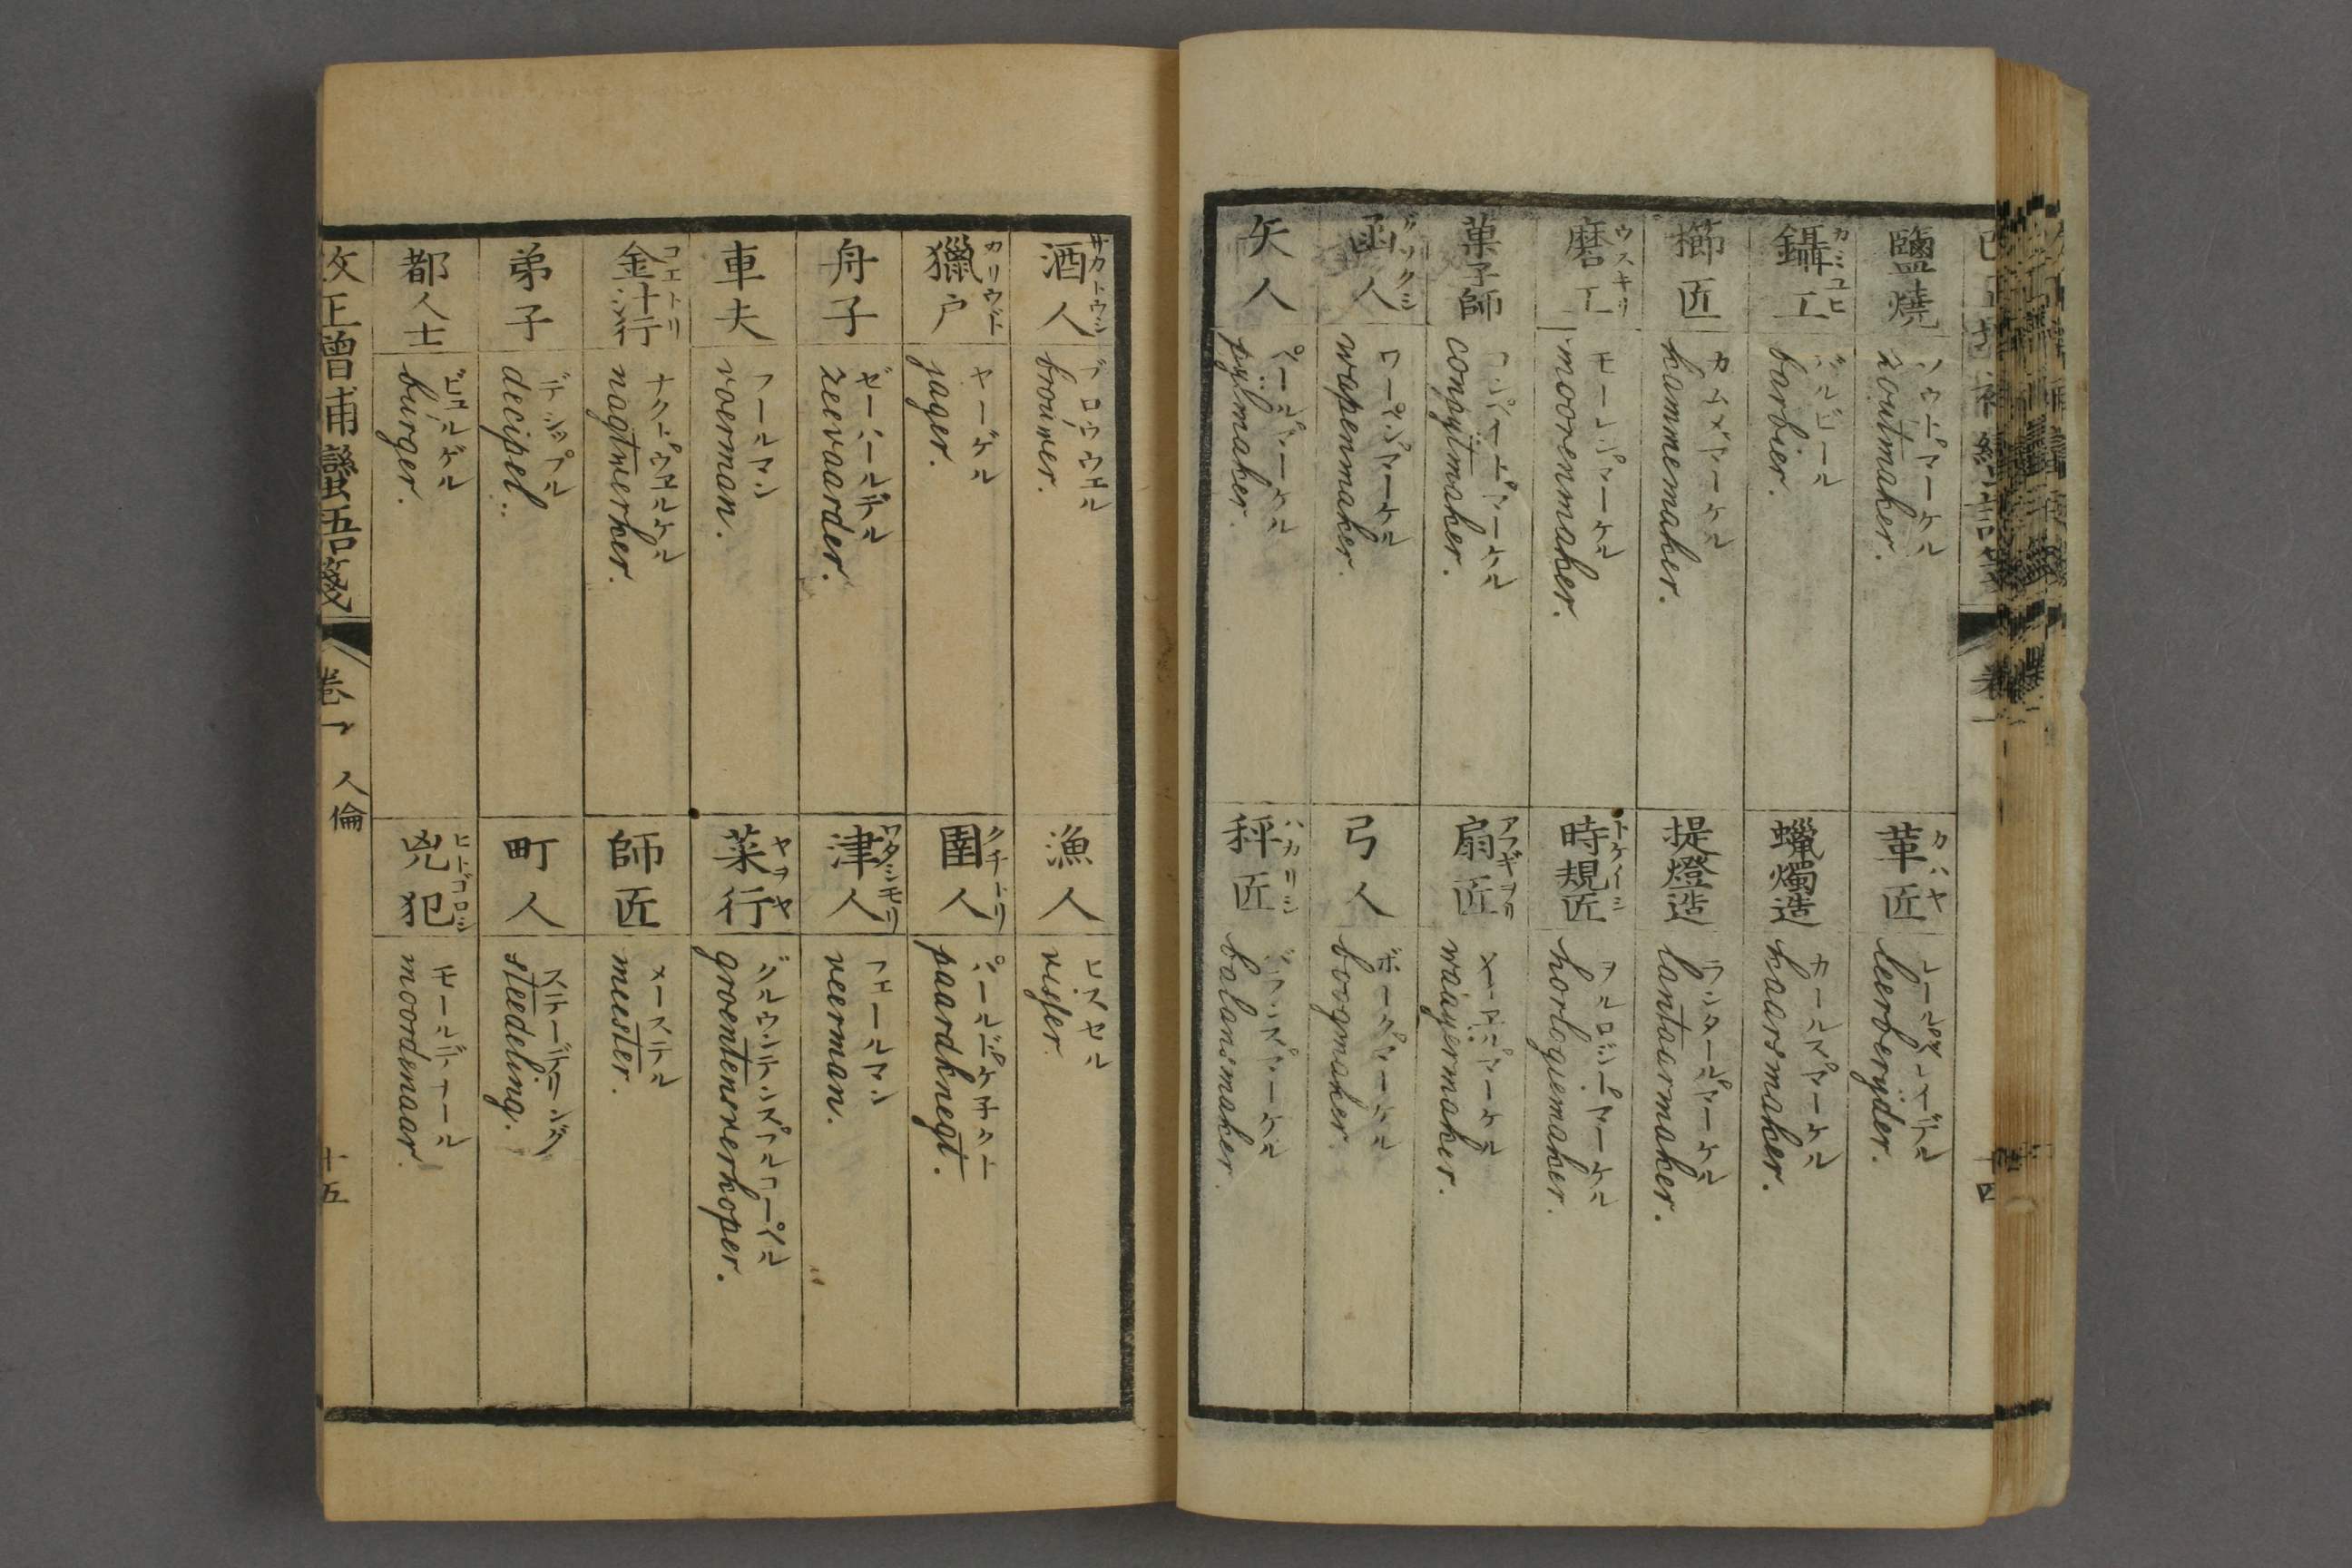 鹽燒
ソウトマーケル
zoutmaker.
革匠
カハヤ
leerberyder.
鑷工
カミユヒ
バルビール
barbier.
蠟燭造
カールスマーケル
kaarsmaker.
櫛匠
カムメマーケル
kammemaker.
提燈造
ランタールマーケル
lantaarmaker.
磨工
ウスキリ
モーレンマーケル
moorenmaker.
時規匠
トケイシ
ヲルロジーマーケル
horlogiemaker.
菓子師
conpytmaker.
扇匠
アフギヲリ
waayermaker.
函人
グソクシ
ワーペンマーケル
wapenmaker.
弓人
ボーグマーケル
boogmaker.
矢人
ペールマーケル
pylmaker.
秤匠
ハカリシ
バランスマーケル
balansmaker.
卷一
十四
酒人
サカトウジ
ブロウウエル
brouwer.
漁人
ヒスセル
visser.
獵戸
カリウド
ヤーゲル
jager.
圉人
クチトリ
パールドケネクト
paardknegt.
舟子
ゼーハールデル
zeevaarder.
津人
ワタシモリ
フェールマン
veerman.
車夫
フールマン
voerman.
菜行
ヤヲヤ
グルウンテンスフルコーペル
groentenverkoper.
金汁行
コエトリ
ナクトウェルケル
nagtwerker.
師匠
メーステル
meester.
弟子
デシップル
decipel.
町人
ステーデリング
steedeling.
都人士
ビュルゲル
burger.
兇犯
ヒトゴロシ
モールデナール
moordenaar.
改正増補蠻語箋
卷一
人倫
十五